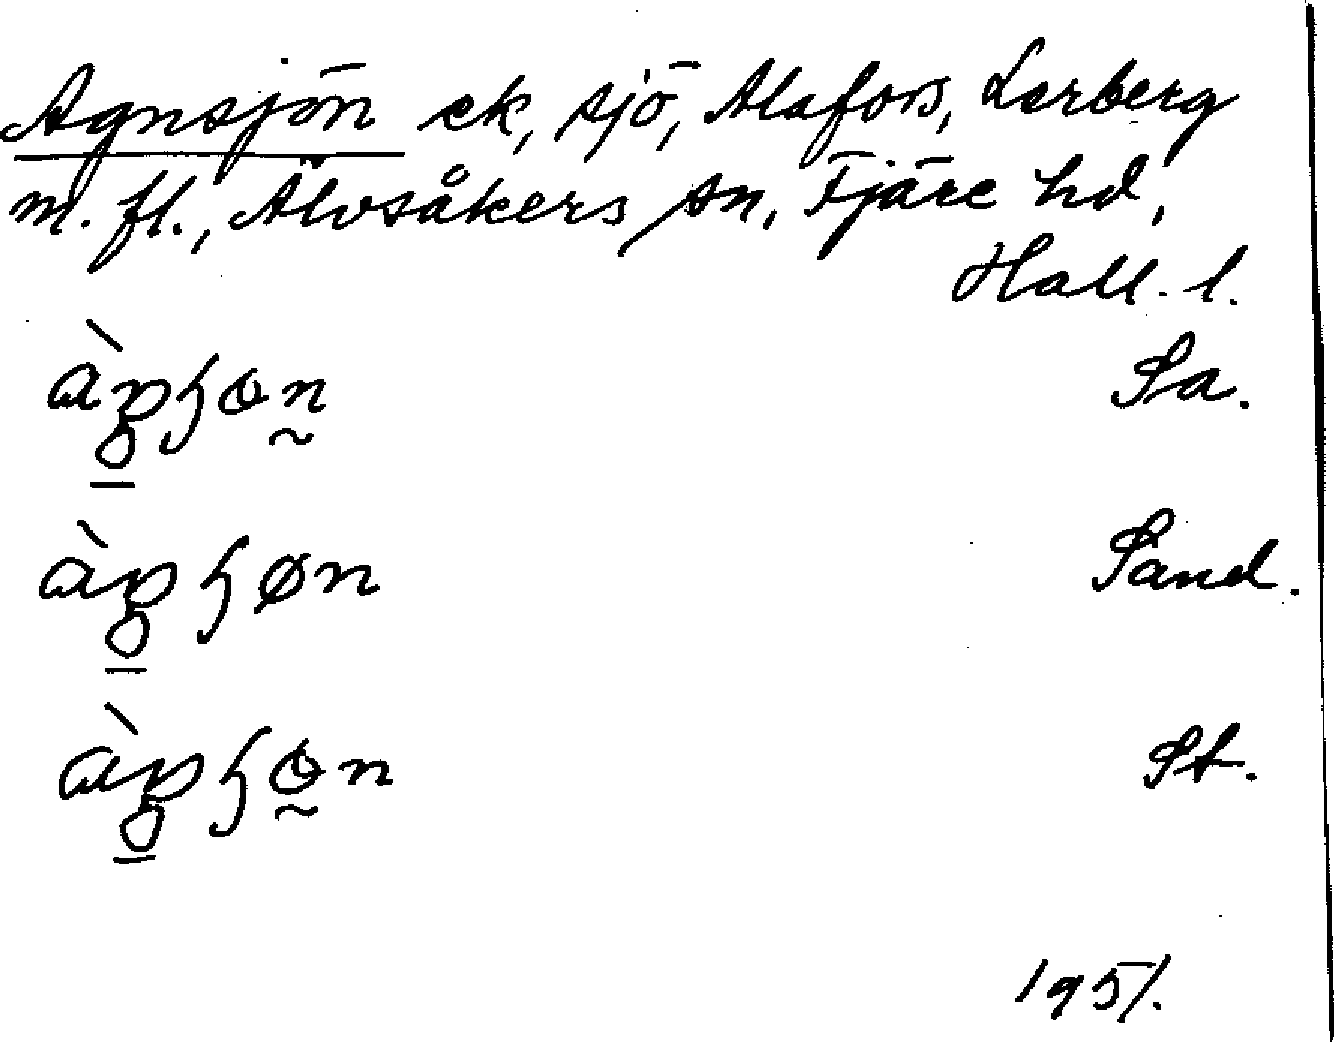 Agnsjön ek, sjö, Alafors, Lerberg
m. fl., Älvsåkers sn, Fjäre hd,
Hall. l.
Sa.
Sand.
St.
1951.